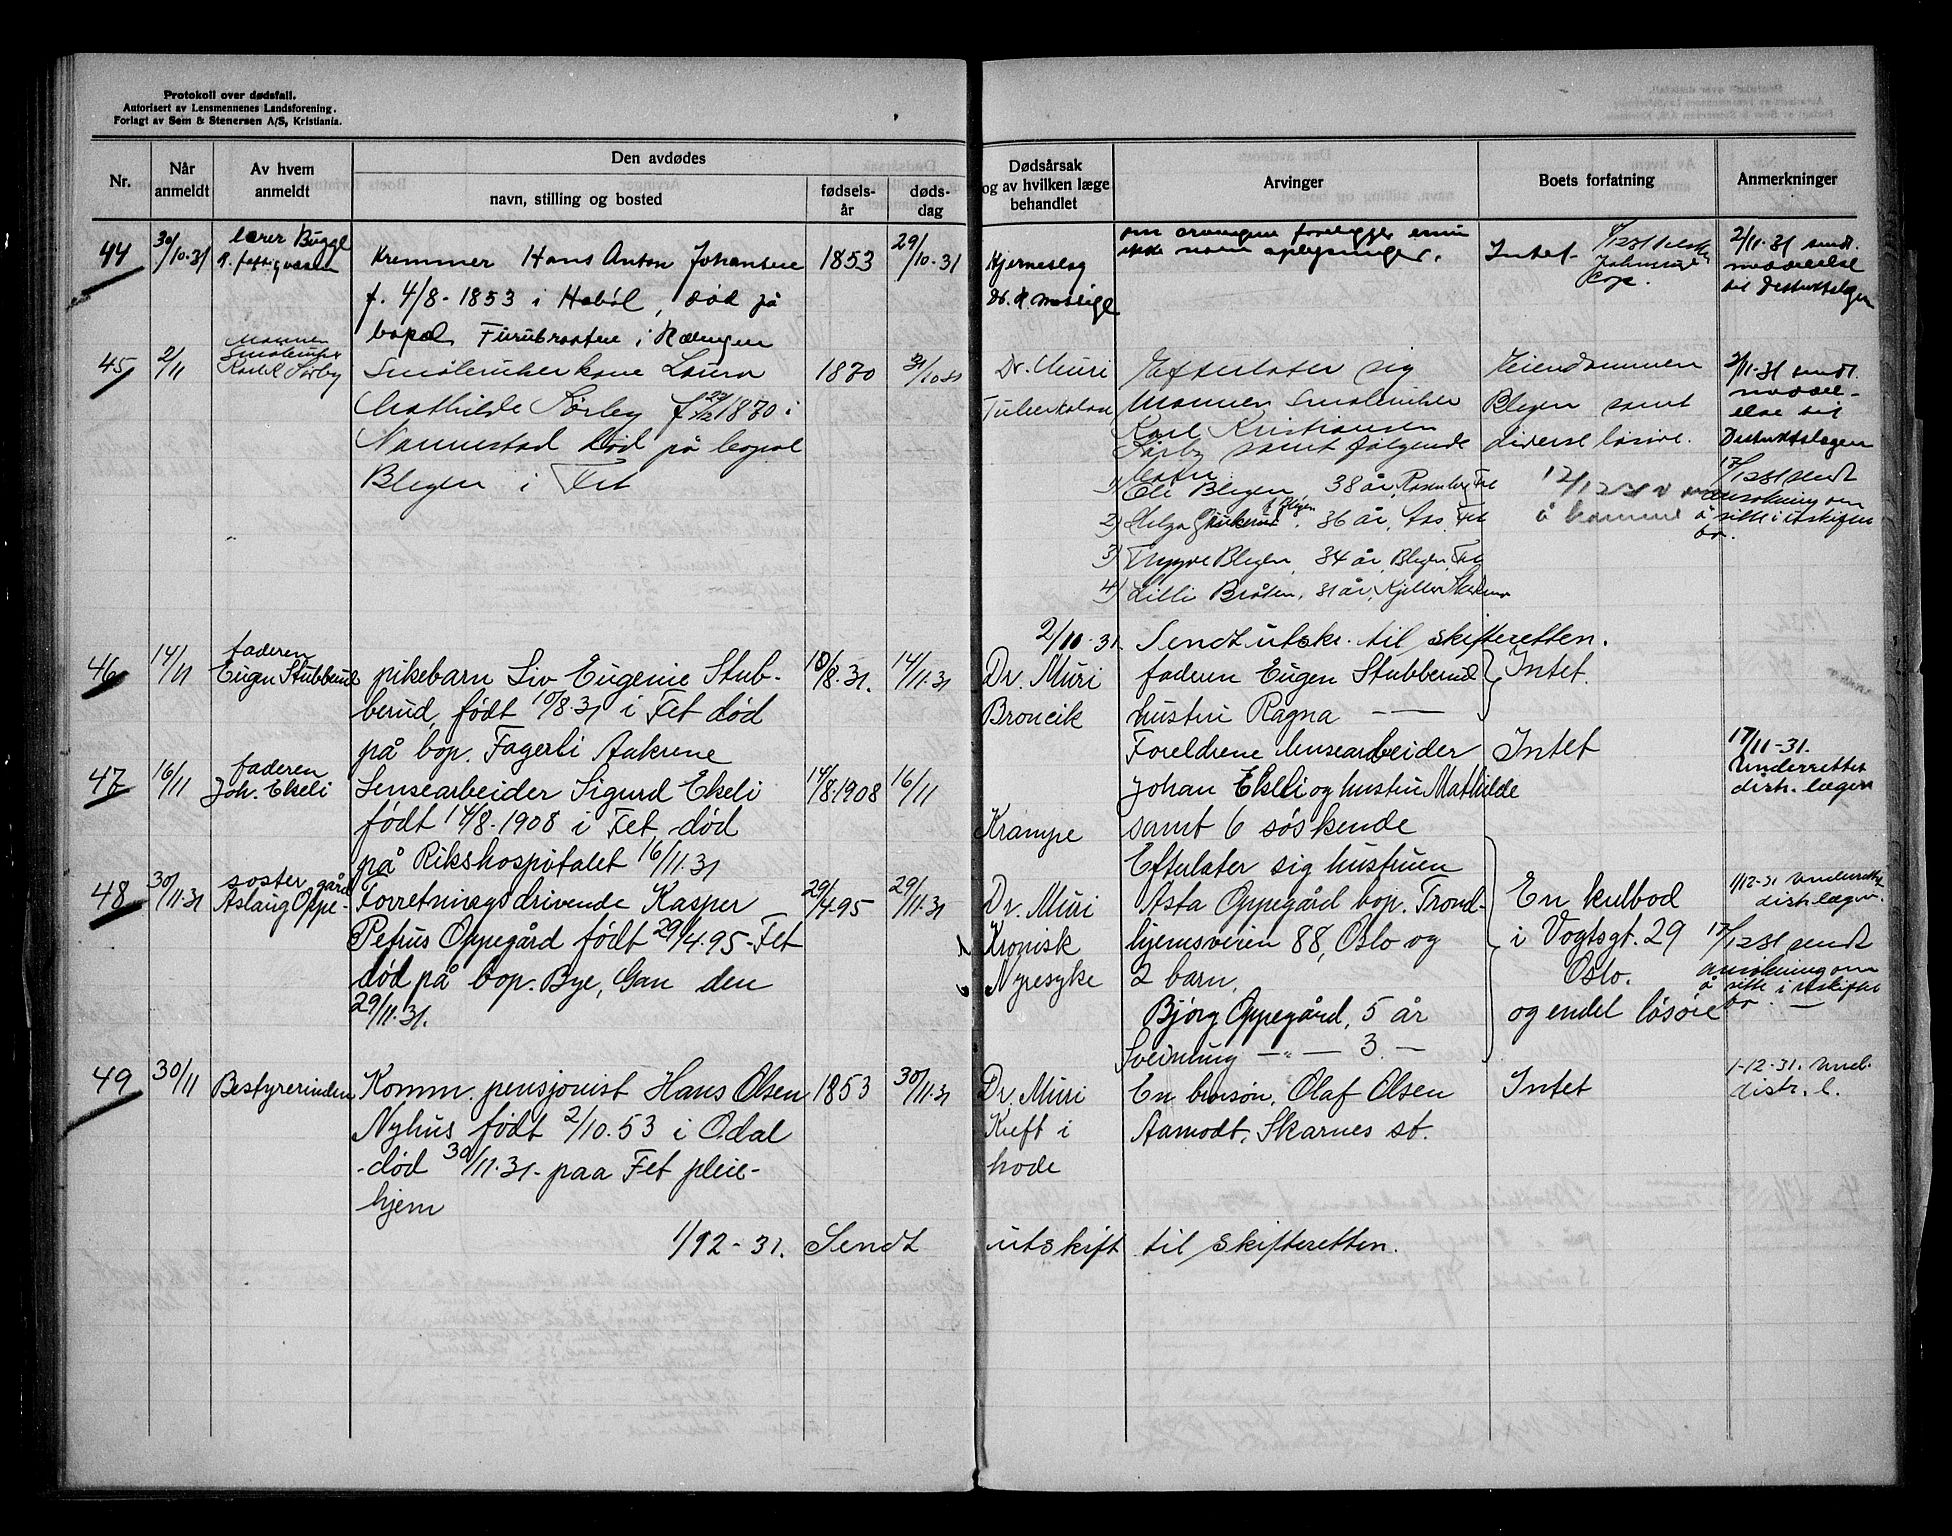 Protokoll over dødsfall.
Autorisert av Lensmennenes Landsforening.
Forlagt av Sem & Stenersen A/S, Kristiania.
Nr.
Når anmeldt
Av hvem anmeldt
Den avdødes
navn, stilling og bosted
fødsels-år
døds-dag
Dødsårsak og av hvilken læge behandlet
Arvinger
Boets forfatning
Anmerkninger
44
30/10-31
lærer Bugge
Kremmer Hans Anton Johansen
f. 4/8-1853 i Hobøl, død på
bopæl Furubråten i Rælingen
1853
29/10-31
Hjerneslag
om arvingene foreligger ennu
ikke noen oplysninger.
Intet
2/11-31 sendt
meddelelse
til Distriktslægen
45
2/11
Mannen
Småbruker
Karl Sørby
Småbrukerkone Laura
Mathilde Sørby f. 29/12 1870 i
Nannestad død på bopæl
Blegen i Fet
1870
31/10 31
Dr. Muri
Tuberkolose
Efterlater sig
Mannen Småbruker
Karl Kristiansen
Sørby samt følgende
barn
1) Eli Blegen, 38 år, Rosenberg Fet
2) Helga f. Blegen, 36 år, Aas, Fet
3) Trygve Blegen, 34 år, Blegen, Fet
4) Lilli Bråten, 31 år, Kjeller
Eiendommen
Blegen samt
diverse løsøre.
2/11-31 sendt
meddel-
else til
Distriktslægen
17/12 31 sendt
ansøkning om
å sitte i uskiftet
bo.
2/11-31. Sendt utskr. til skifteretten.
46
14/11
faderen
Eugen Stubberud
pikebarn Liv Eugenie Stub-
berud, født 10/8-31 i Fet død
på bop. Fagerli Aakrene
10/8-31.
14/11-31
Dr. Muri
Broncik
faderen Eugen Stubberud
hustru Ragna — —
Intet.
47
16/11
faderen
Joh. Ekeli
Lensearbeider Sigurd Ekeli
født 14/8-1908 i Fet, død
på Rikshospitalet 16/11.31
14/8-1908
16/11
Krampe
Foreldrene lensearbeider
Johan Ekeli og hustru Mathilde
samt 6 søskende
Intet
17/11-31.
Underrettet
distr. lægen
48
30/11-31
søster
Aslaug Oppe-
gård
Forretningsdrivende Kasper
Petrus Oppegård født 29/4.95-Fet
død på bop. Bye, Gan den
29/11.31.
29/4-95
29/11-31
Dr. Muri
Kronisk
Nyresyke
Efterlater sig hustruen
Asta Oppegård bop. Trond-
hjemsveien 88, Oslo og
2 barn,
Bjørg Oppegård, 5 år
Sveinung — „ — 3. —
En kulbod
i Vogtsgt. 29
Oslo.
og endel løsøre
1/12-31 underrettet
distr. lægen.
17/12 31 sendt
ansøkning om
å sitte i uskiftet
bo. —
49
30/11
Bestyrerinden
Komm. pensjonist Hans Olsen
Nyhus født 2/10.53 i Odal
-død 30/11.31- paa Fet pleie-
hjem
1853
30/11-31
Dr. Muri
Kreft i
hode
En brorsøn, Olaf Olsen
Aamodt, Skarnes st.
Intet
1-12-31. und.
distr. l.
1/12-31. Sendt utskrift til skifteretten.